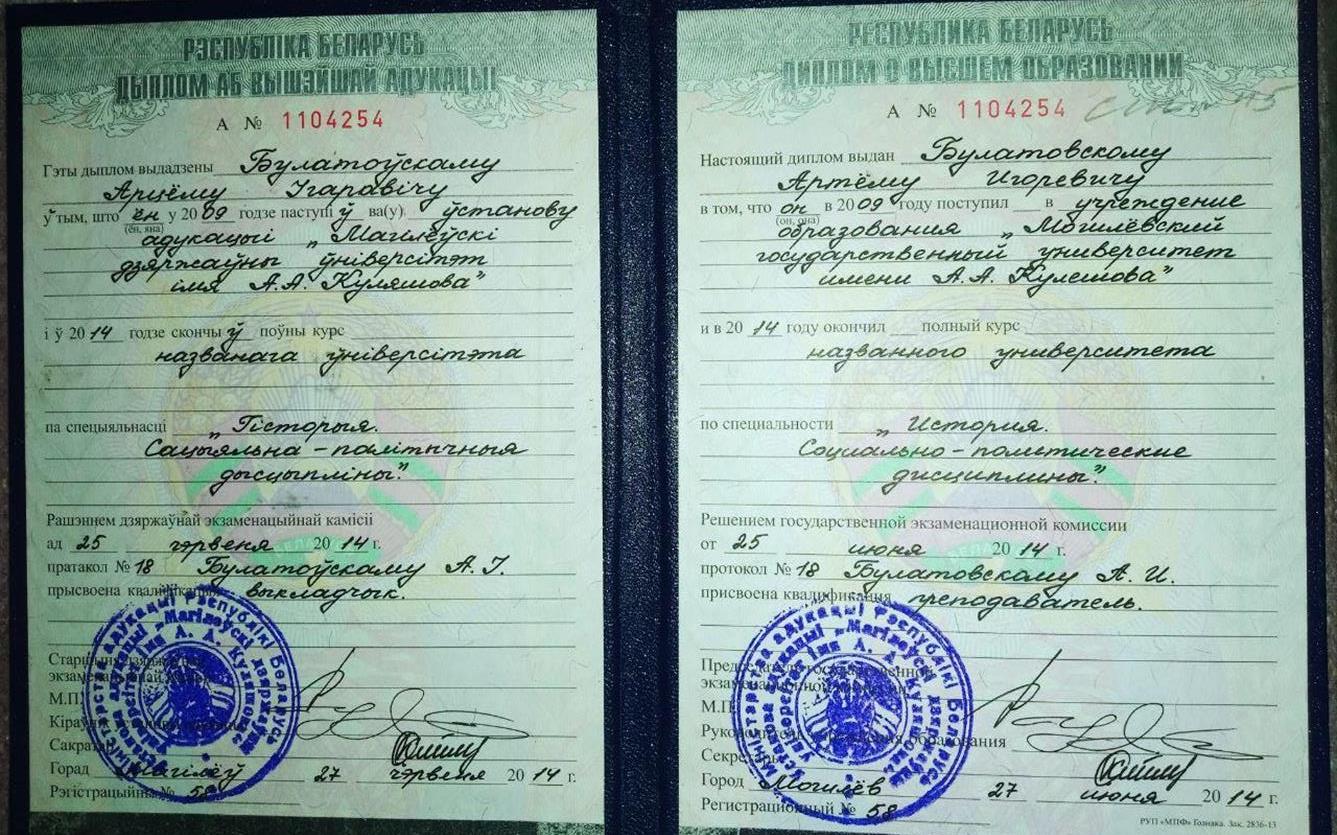 РЭСПУБЛІКА БЕЛАРУСЬ
ДЫПЛОМ АБ ВЫШЭЙШАЙ АДУКАЦЫІ
А № 1104254
Гэты дыплом выдадзены Булатоўскаму
Арцёму Ігаравічу
ў тым, што ён у 2009 годзе паступіў ва(у) ўстанову
(ён, яна)
адукацыі „Магілёўскі
дзяржаўны ўніверсітэт
імя А.А. Куляшова"
і ў 2014 годзе скончыў поўны курс
названага ўніверсітэта
па спецыяльнасці „Гісторыя.
Сацыяльна-палітычныя
дысцыпліны".
Рашэннем дзяржаўнай экзаменацыйнай камісіі
ад 25 чэрвеня 2014 г.
пратакол № 18 Булатоўскаму А.І.
прысвоена кваліфікацыя выкладчык.
Старшыня дзяржаўнай
экзаменацыйнай
М.П.
Кіраўнік
Сакратар
Горад Магілёў 27 чэрвеня 2014 г.
Рэгістрацыйны № 58
РЕСПУБЛИКА БЕЛАРУСЬ
ДИПЛОМ О ВЫСШЕМ ОБРАЗОВАНИИ
А № 1104254
Настоящий диплом выдан Булатовскому
Артёму Игоревичу
в том, что он в 2009 году поступил в учреждение
(он, она)
образования „Могилёвский
государственный университет
имени А.А. Кулешова"
и в 2014 году окончил полный курс
названного университета
по специальности „История.
Социально-политические
дисциплины".
Решением государственной экзаменационной комиссии
от 25 июня 2014 г.
протокол № 18 Булатовскому А.И.
присвоена квалификация преподаватель.
Председатель государственной
экзаменационной
М.П.
Руководитель учреждения образования
Секретарь
Город Могилёв 27 июня 2014 г.
Регистрационный № 58
РУП «МПФ» Гознака. Зак. 2836-13